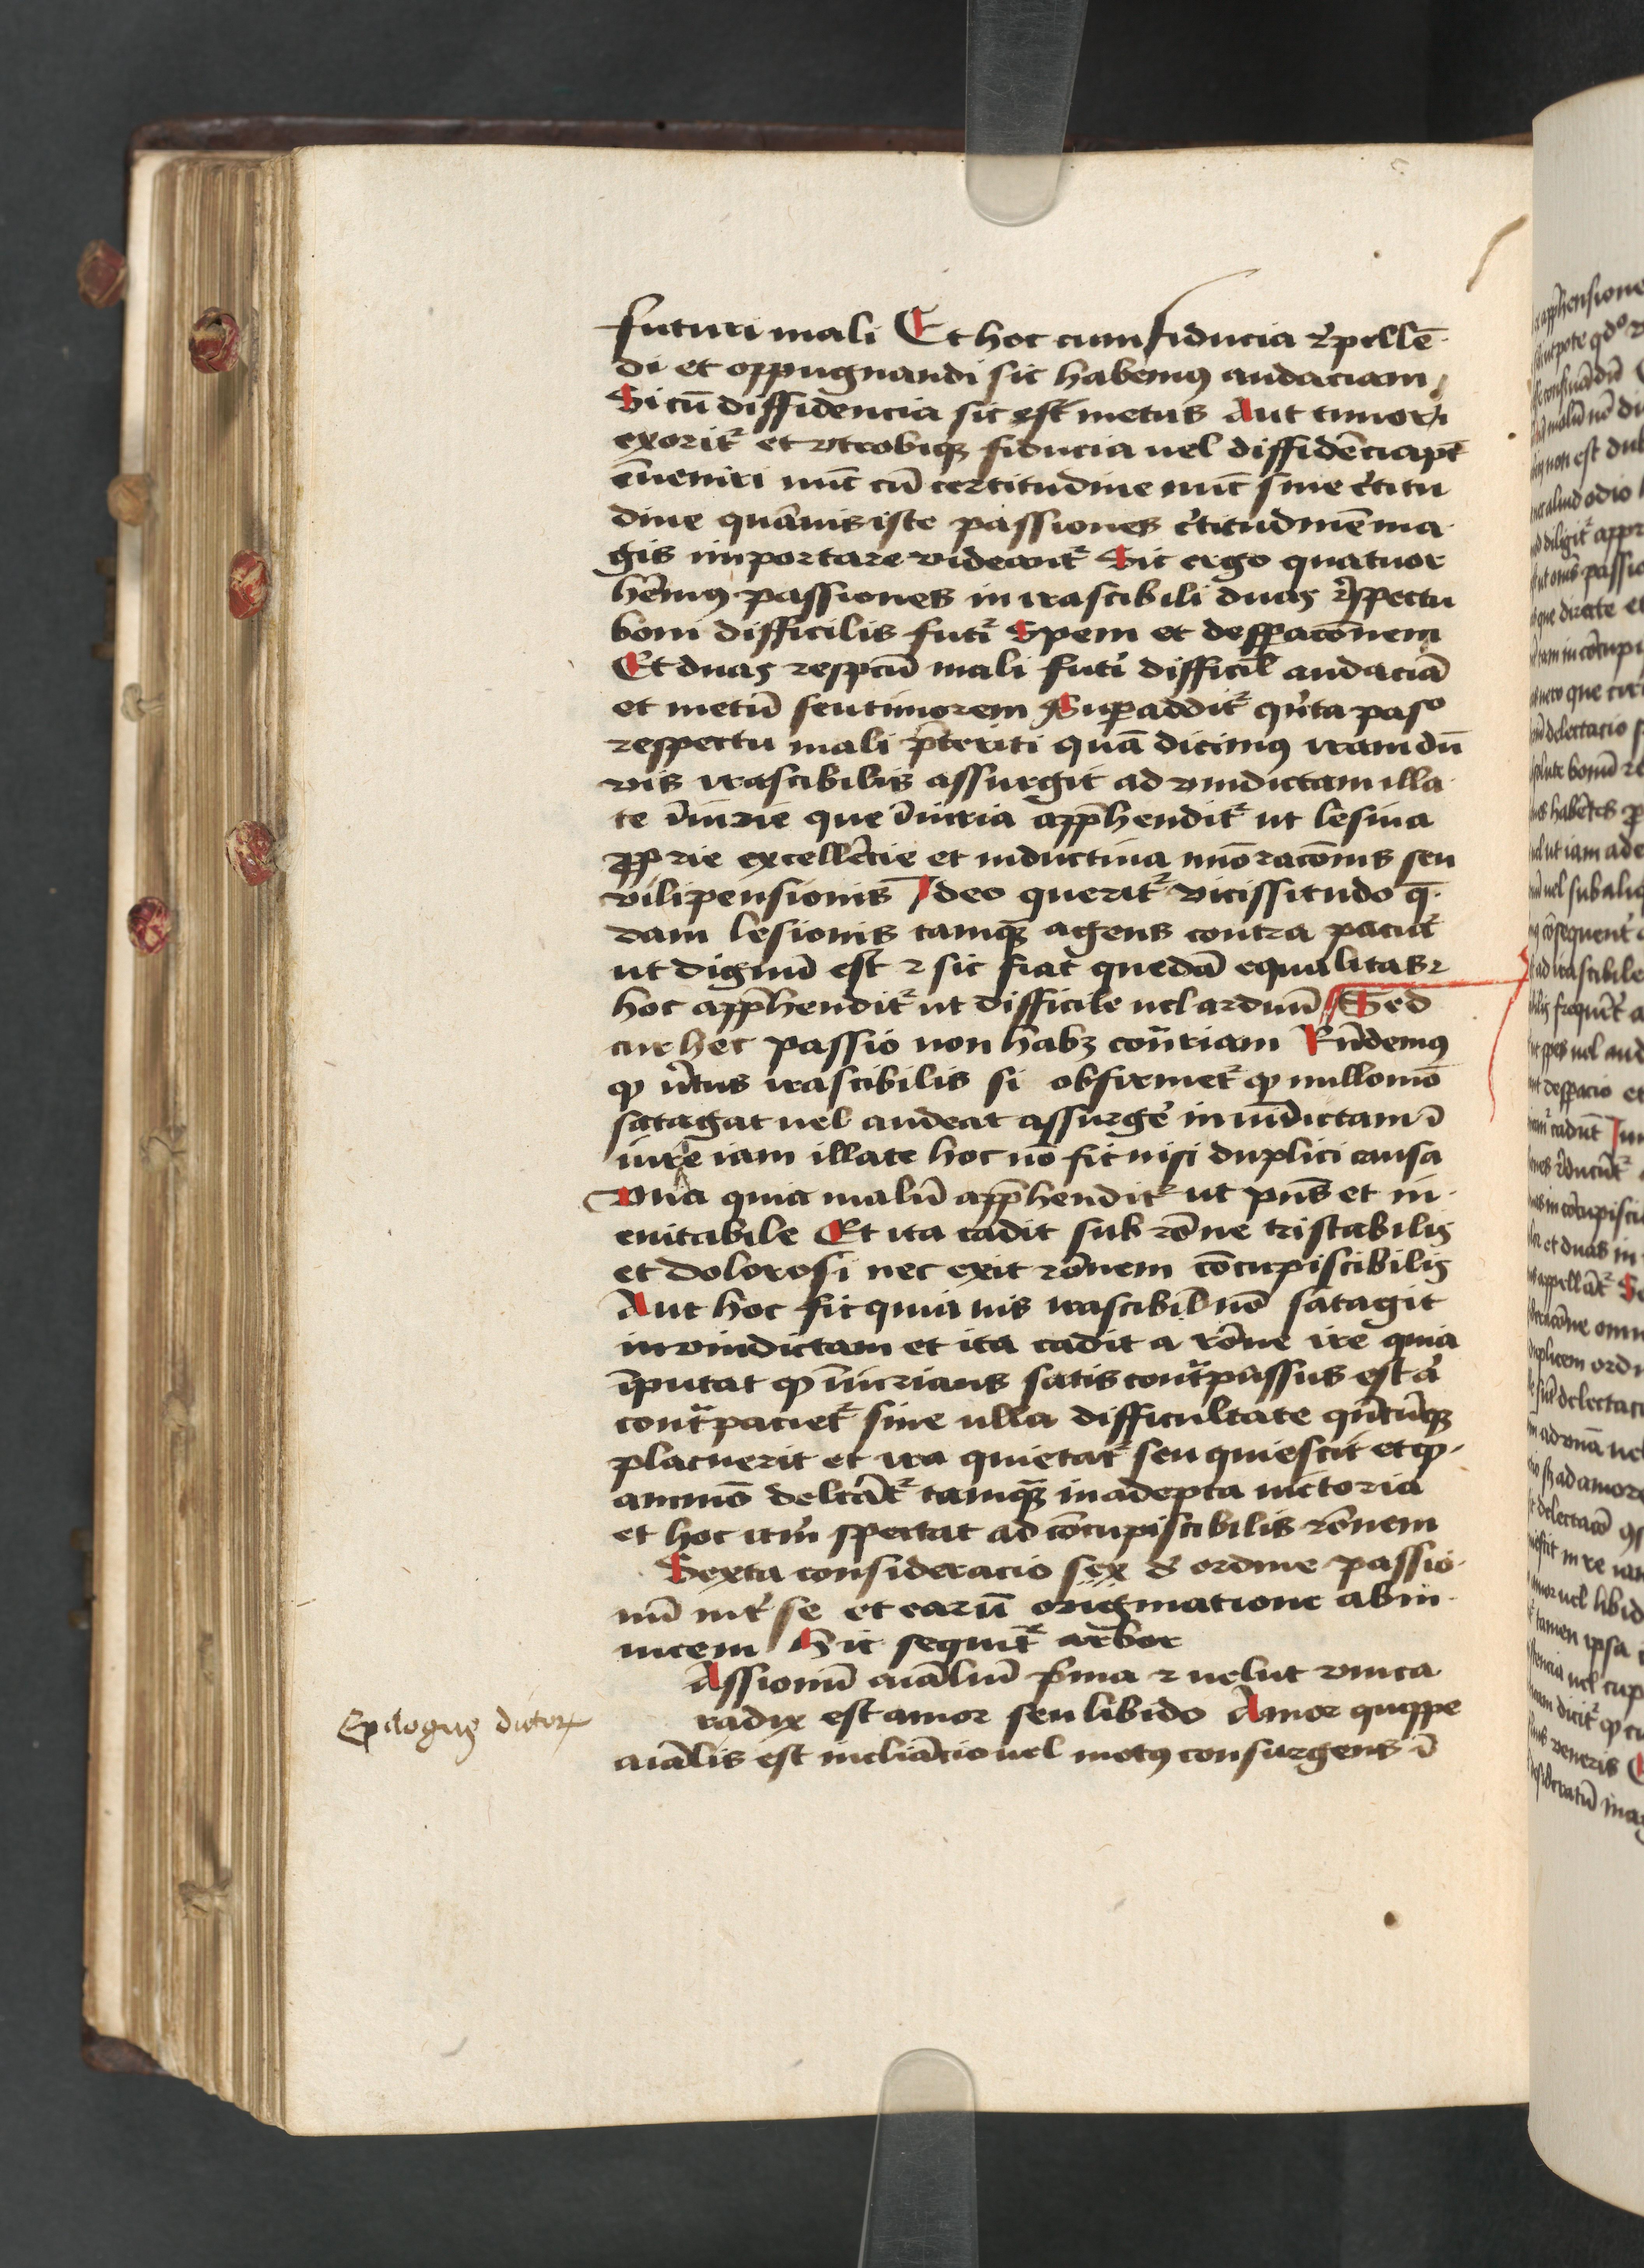 futuri mali Et hoc cum fiducia r̉pellē
di et oppugnandi sic habemꝯ audaciam
Si cū diffidencia sic est metus Aut timor
exorit᷑ et vtrobiqꝫ fiducia uel diffidēcia pt̄
īueniri nūc cū certitudine nūc sine c̉titu
dine quāuis iste passiones c̉titudinē ma
gis importare videant᷑ Sic ergo quatuor
hēmꝯ passiones in irascibili duas r̉spectu
boni difficilis fut̉i Spem et despꝑacōnem
Et duas respcū mali fut̉i difficił audaciā
et metū seu timorem Suꝑaddit᷑ qủta pas°
respectu mali p̄teriti quā dicimꝯ iram dū
vis irascibilis assurgit ad vindictam illa
te īiurie que īiuria app̄hendit᷑ ut lesiua
ꝓprie excellēcie et inductiua minōracōnis seu
vilipensionis Ideo querit᷑ vicissitudo q̄
dam lesionis tamqꝫ agens contra paciat᷑
ut dignū est ⁊ sic fiat quedā equalitas ⁊
hoc app̄hendit᷑ ut difficile uel arduū Sed
cur hec passio non habꝫ cōtr̄iam Rn̄demꝯ
ꝙ v̉tus irascibilis si obfirmet᷑ ꝙ nullomō
satagat uel audeat assurgē in vīdictam ī
iurie iam illate hoc nō fit nisi duplici causa
Vna quia malū app̄hendit᷑ ut pn̄s et in
euitabile Et ita cadit sub rōne tristabilis
et dolorosi nec exit rōnem cōcupiscibilis
Aut hoc fit quia uis irascibił nō satagit
in vindictam et ita cadit a rōne ire quia
īputat ꝙ īiurians satis cont᷑passus est aͥ
cont᷑paciet᷑ sine ulla difficultate qn̄cūqꝫ
placuerit et ira quietat᷑ seu quiescit et ꝙ
ammō delcāt᷑ tamqꝫ in adepta victoria
et hoc itm̄ spectat ad cōcupiscibilis rōnem
Sexta consideracio sex d̉ ordine passio
nū int̉ se et earū originatione abin
uicem Sic sequit᷑ arbor
Assionū aīaliū p̄ma ⁊ uelut vnica
radix est amor seu libido Amor quippe
aīalis est incliācio uel motꝯ consurgens ī
Epilogus dictoꝝ